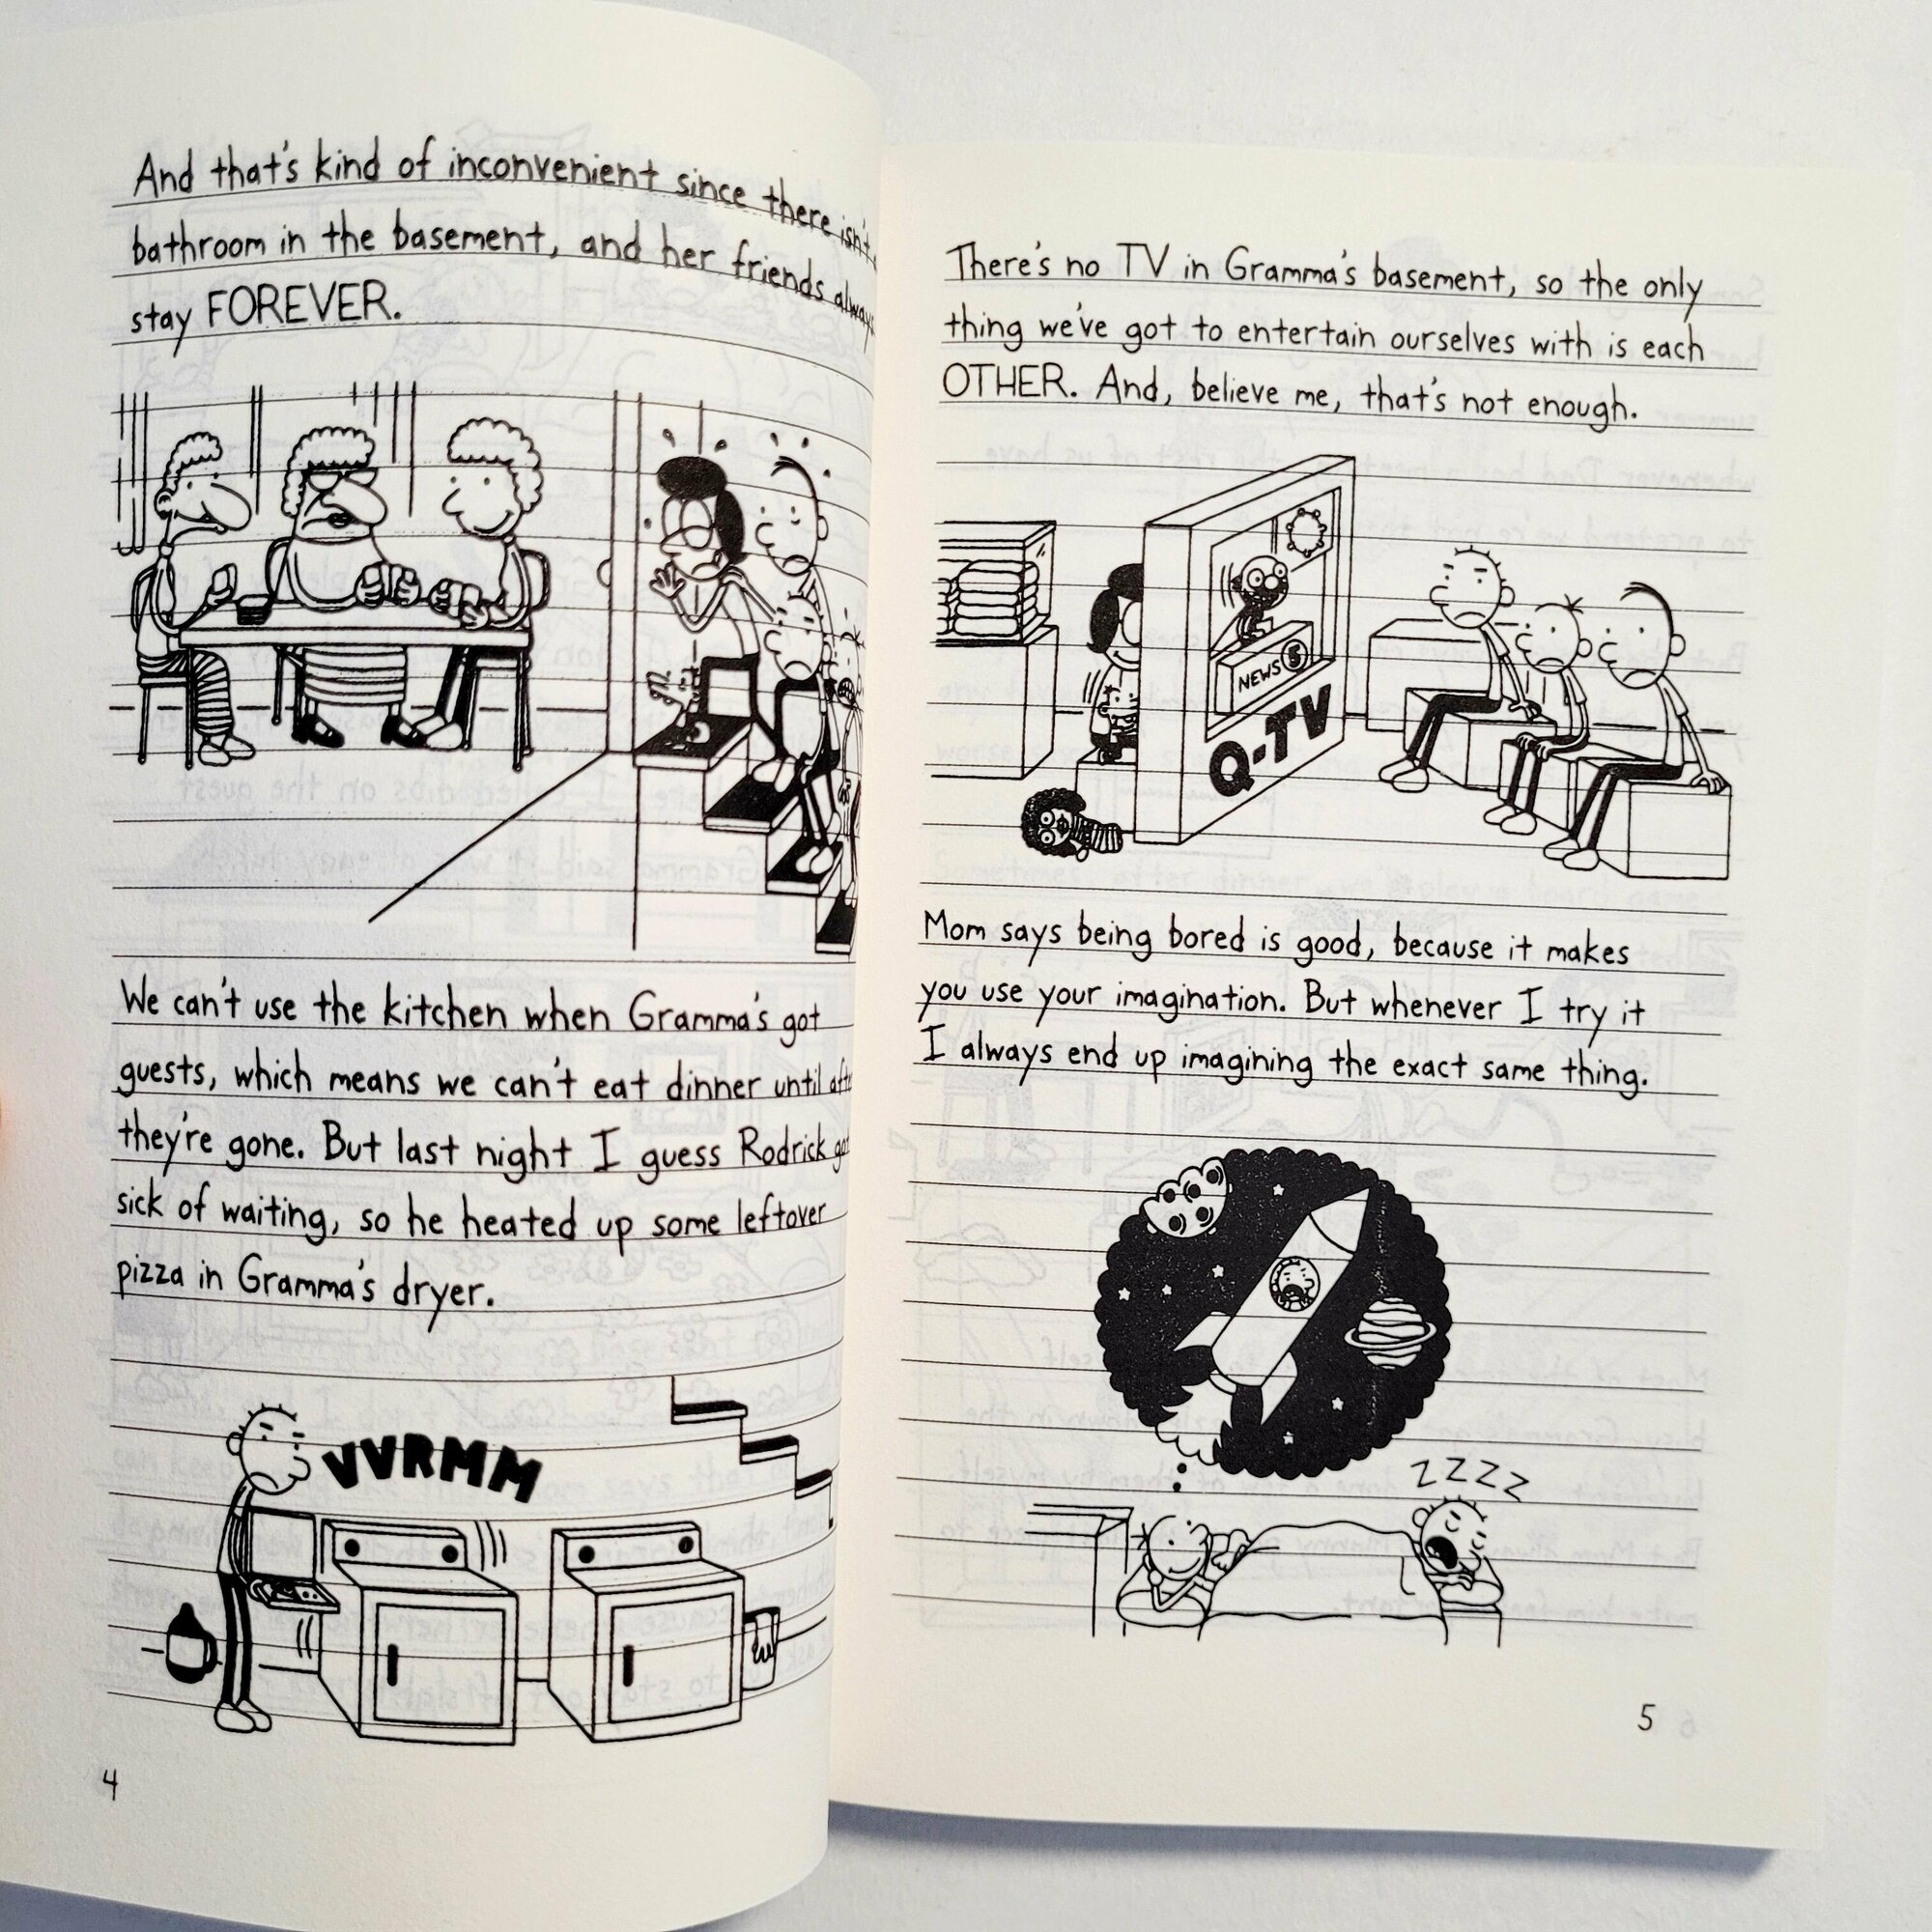 And that's kind of inconvenient since there isn't
bathroom in the basement, and her friends always
stay FOREVER.
We can't use the kitchen when Gramma's got
guests, which means we can't eat dinner until
they're gone. But last night I guess Rodrick
sick of waiting, so he heated up some leftover
pizza in Gramma's dryer.
VVRMM
4
There's no TV in Gramma's basement, so the only
thing we've got to entertain ourselves with is each
OTHER. And, believe me, that's not enough.
NEWS 5
Q-TV
Mom says being bored is good, because it makes
you use your imagination. But whenever I try it
I always end up imagining the exact same thing.
ZZZZ
5